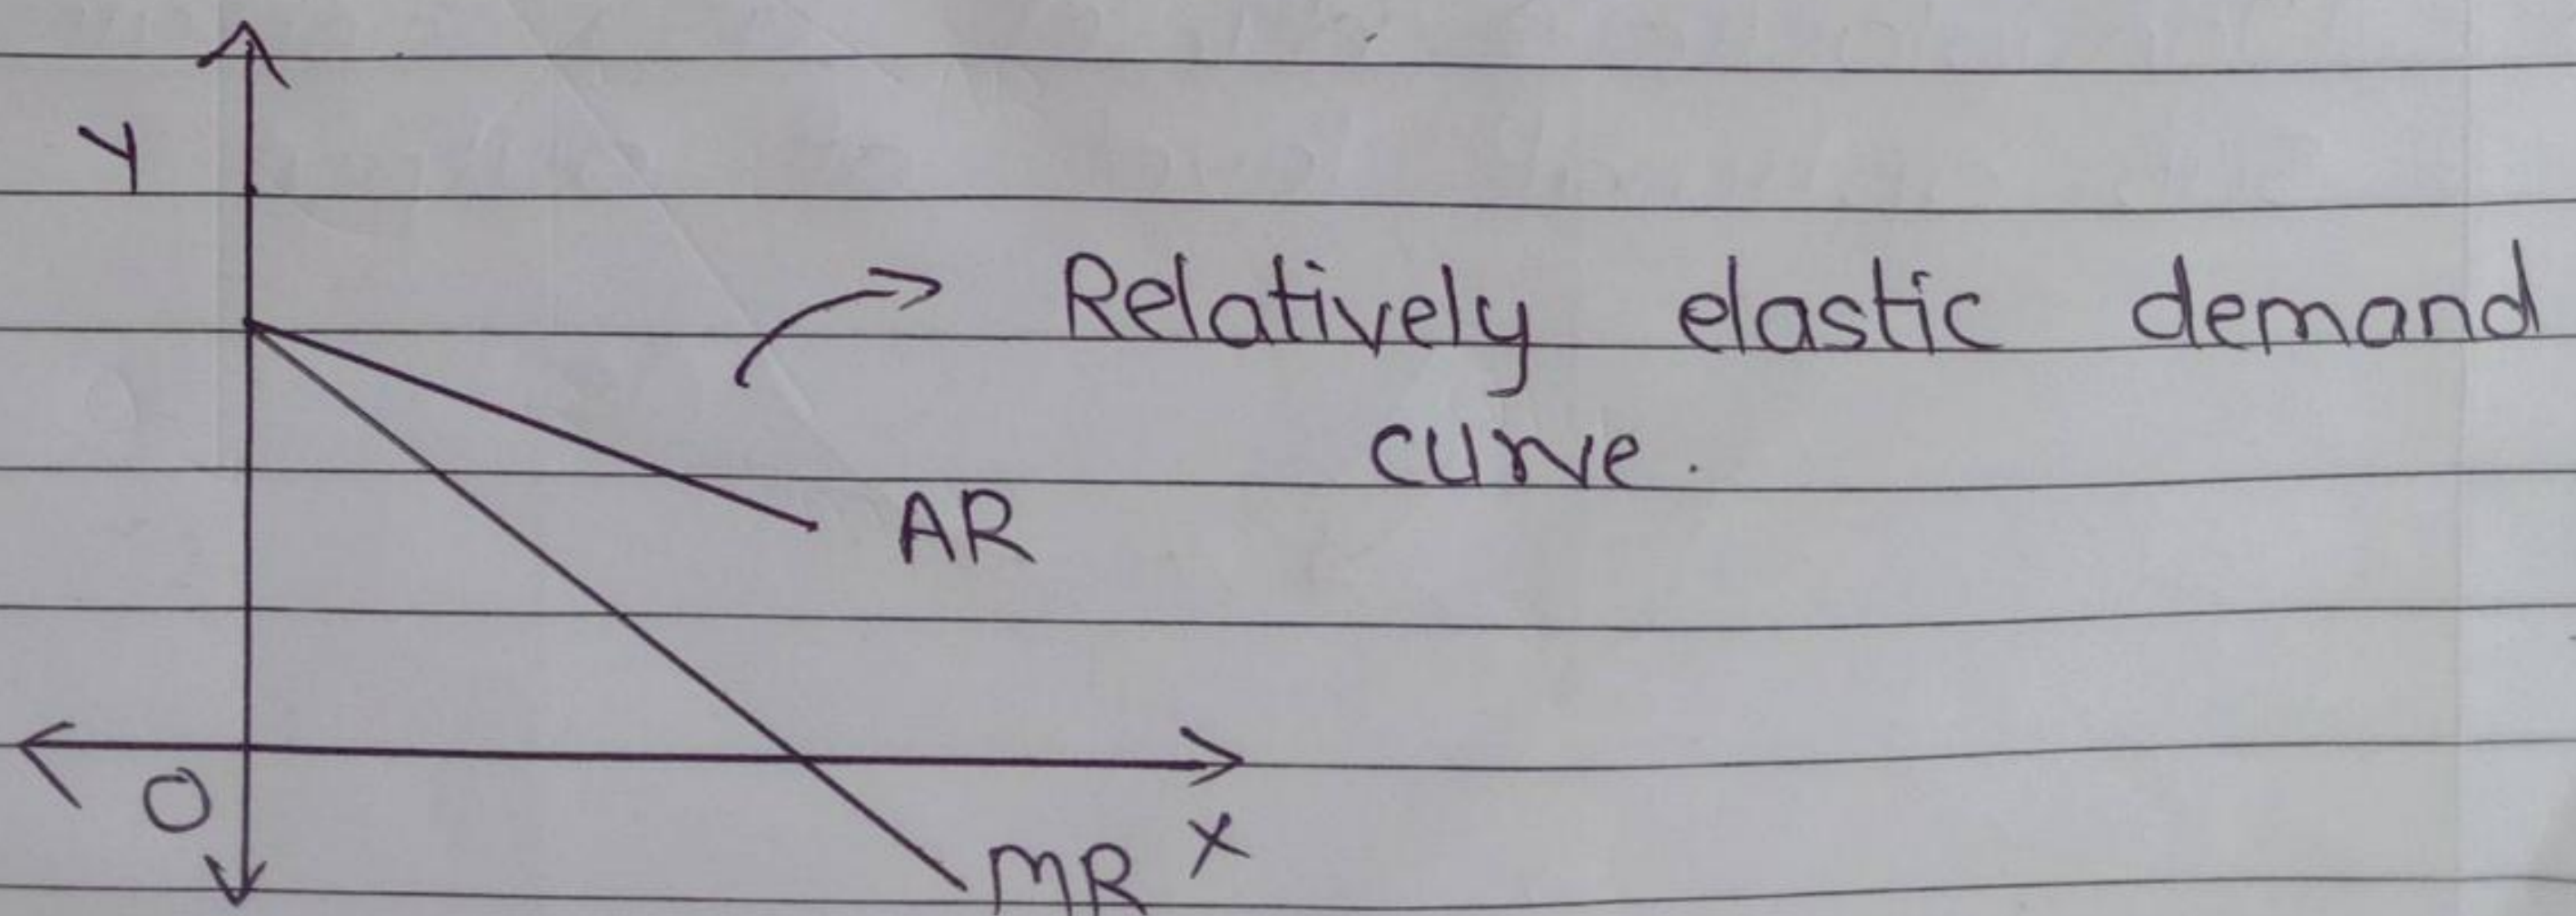 Y
Relatively elastic demand
curve.
AR
O
X
MR